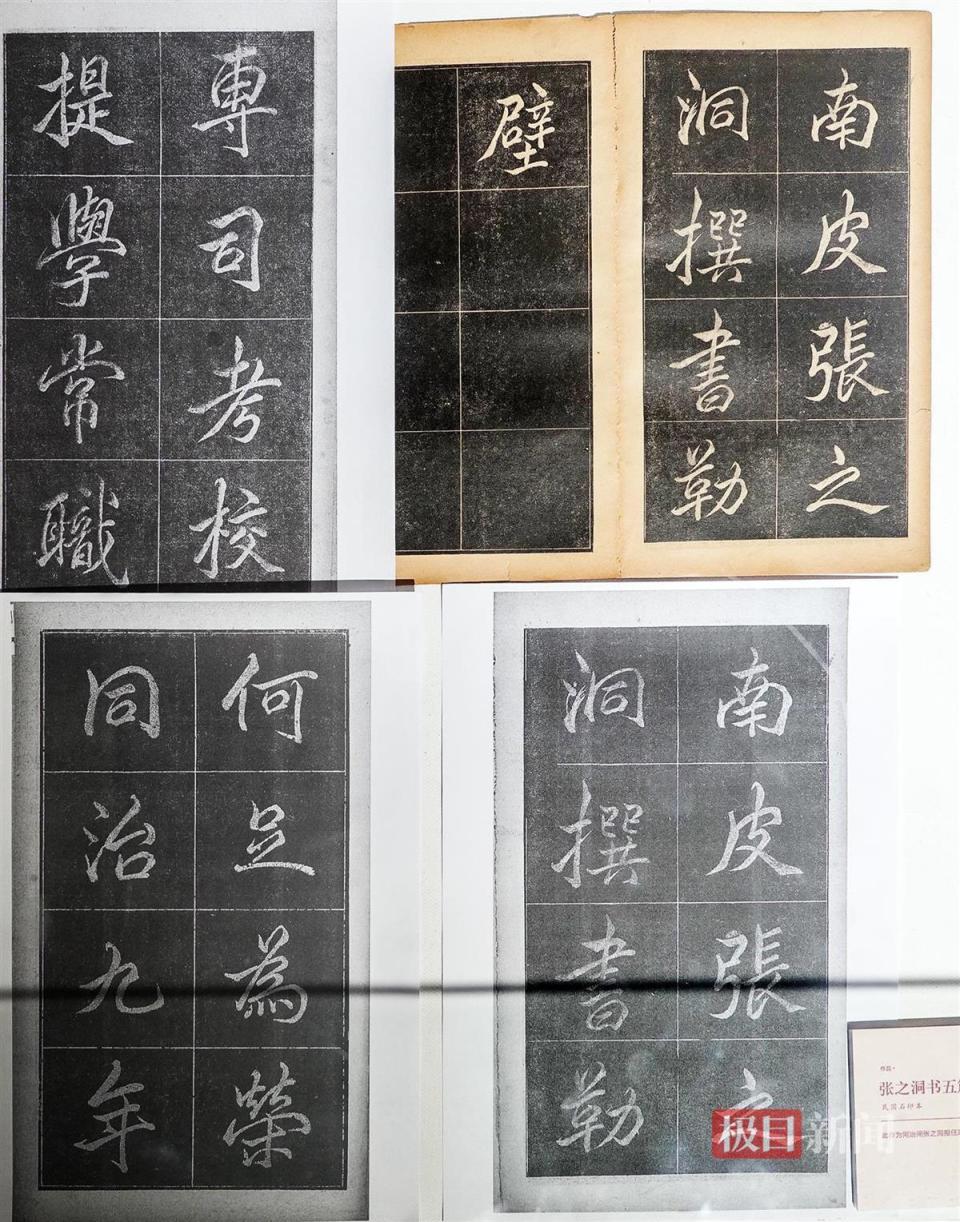 專司考校
提學常職
南皮張之
洞撰書勒
壁
何足為榮
同治九年
南皮張之
洞撰書勒
作品·
张之洞书五
民国石印本
极目新闻